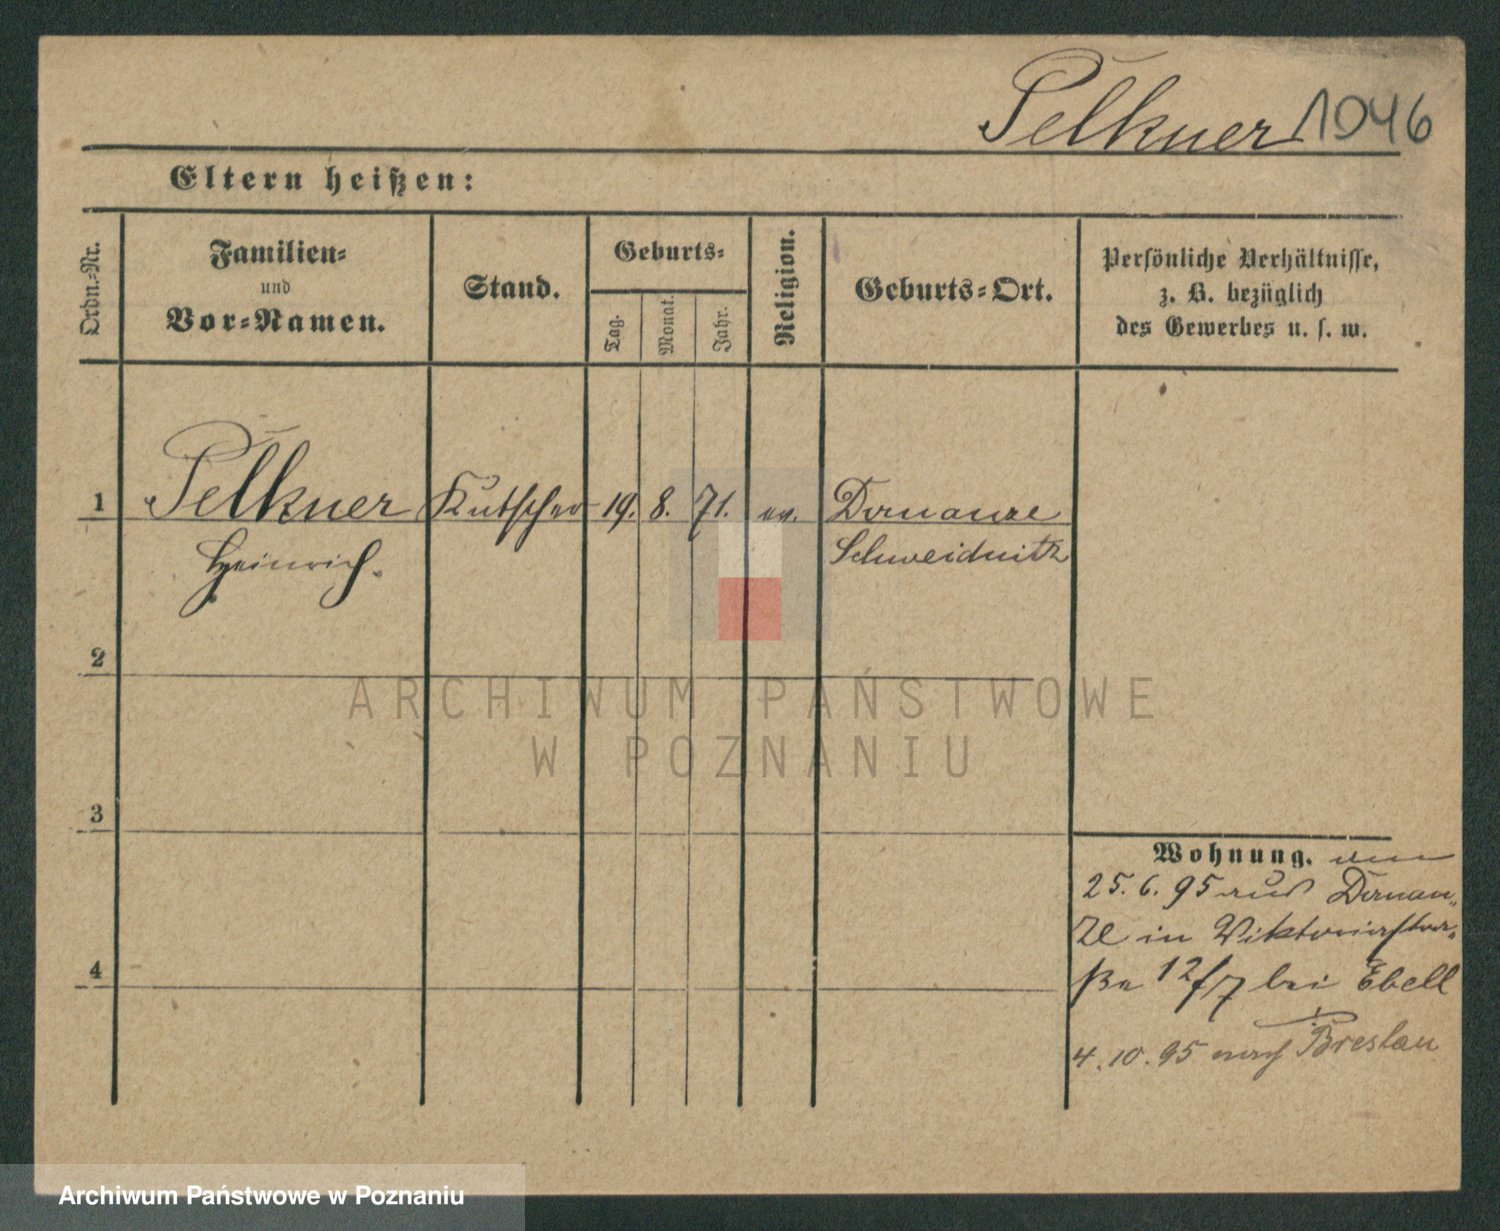 Pelkner 1046
Eltern heißen:
Ordn.-Nr.
Familien-
und
Vor-Namen.
Stand.
Geburts-
Tag.
Monat.
Jahr.
Religion.
Geburts-Ort.
Persönliche Verhältnisse,
z. B. bezüglich
des Gewerbes u. s. w.
1 Pelkner Kutscher 19. 8. 71. ev.
Heinrich. Schweidnitz
2
ARCHIWUM PAŃSTWOWE
W POZNANIU
3
4
Wohnung.
25.6.95 aus
in Viktoriastra-
ße 12/7 bei Ebell
4.10.95 nach Breslau
Archiwum Państwowe w Poznaniu